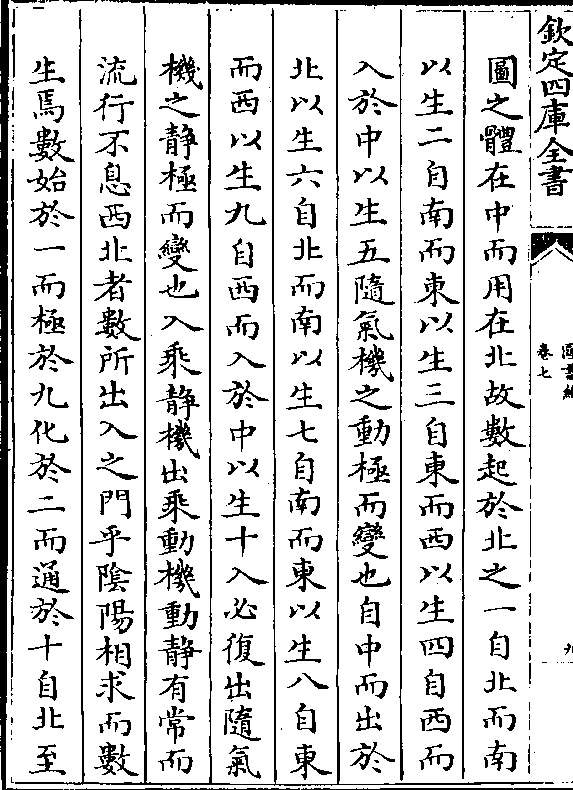 欽定四庫全書
圖書編
卷七
九
圖之體在中而用在北故數起於北之一自北而南
以生二自南而東以生三自東而西以生四自西而
入於中以生五隨氣機之動極而變也自中而出於
北以生六自北而南以生七自南而東以生八自東
而西以生九自西而入於中以生十入必復出隨氣
機之静極而變也入乘静機出乘動機動静有常而
流行不息西北者數所出入之門乎陰陽相求而數
生焉數始於一而極於九化於二而通於十自北至